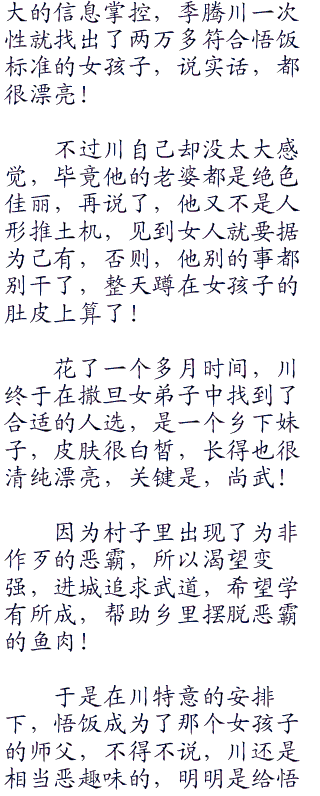 大的信息掌控，季腾川一次
性就找出了两万多符合悟饭
标准的女孩子，说实话，都
很漂亮！
不过川自己却没太大感
觉，毕竟他的老婆都是绝色
佳丽，再说了，他又不是人
形推土机，见到女人就要据
为己有，否则，他别的事都
别干了，整天蹲在女孩子的
肚皮上算了！
花了一个多月时间，川
终于在撒旦女弟子中找到了
合适的人选，是一个乡下妹
子，皮肤很白皙，长得也很
清纯漂亮，关键是，尚武！
因为村子里出现了为非
作歹的恶霸，所以渴望变
强，进城追求武道，希望学
有所成，帮助乡里摆脱恶霸
的鱼肉！
于是在川特意的安排
下，悟饭成为了那个女孩子
的师父，不得不说，川还是
相当恶趣味的，明明是给悟